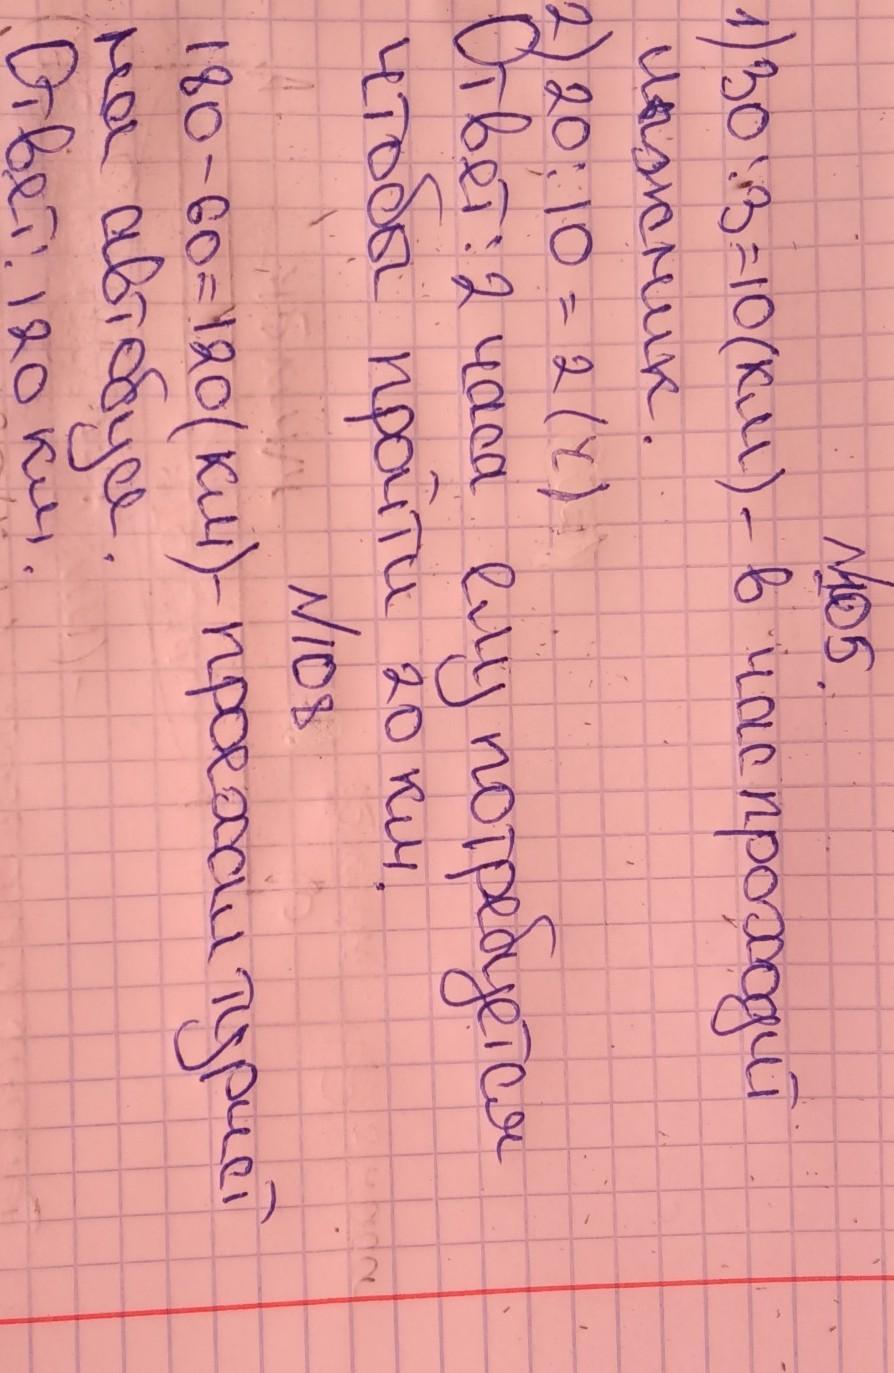 №105.
1) 30:3=10(км) - в час проходит
лыжник.
2) 20:10=2(ч)
Ответ: 2 часа ему потребуется
чтобы пройти 20 км.
№108
180-60=120(км)- проехал турист
на автобусе.
Ответ: 120 км.